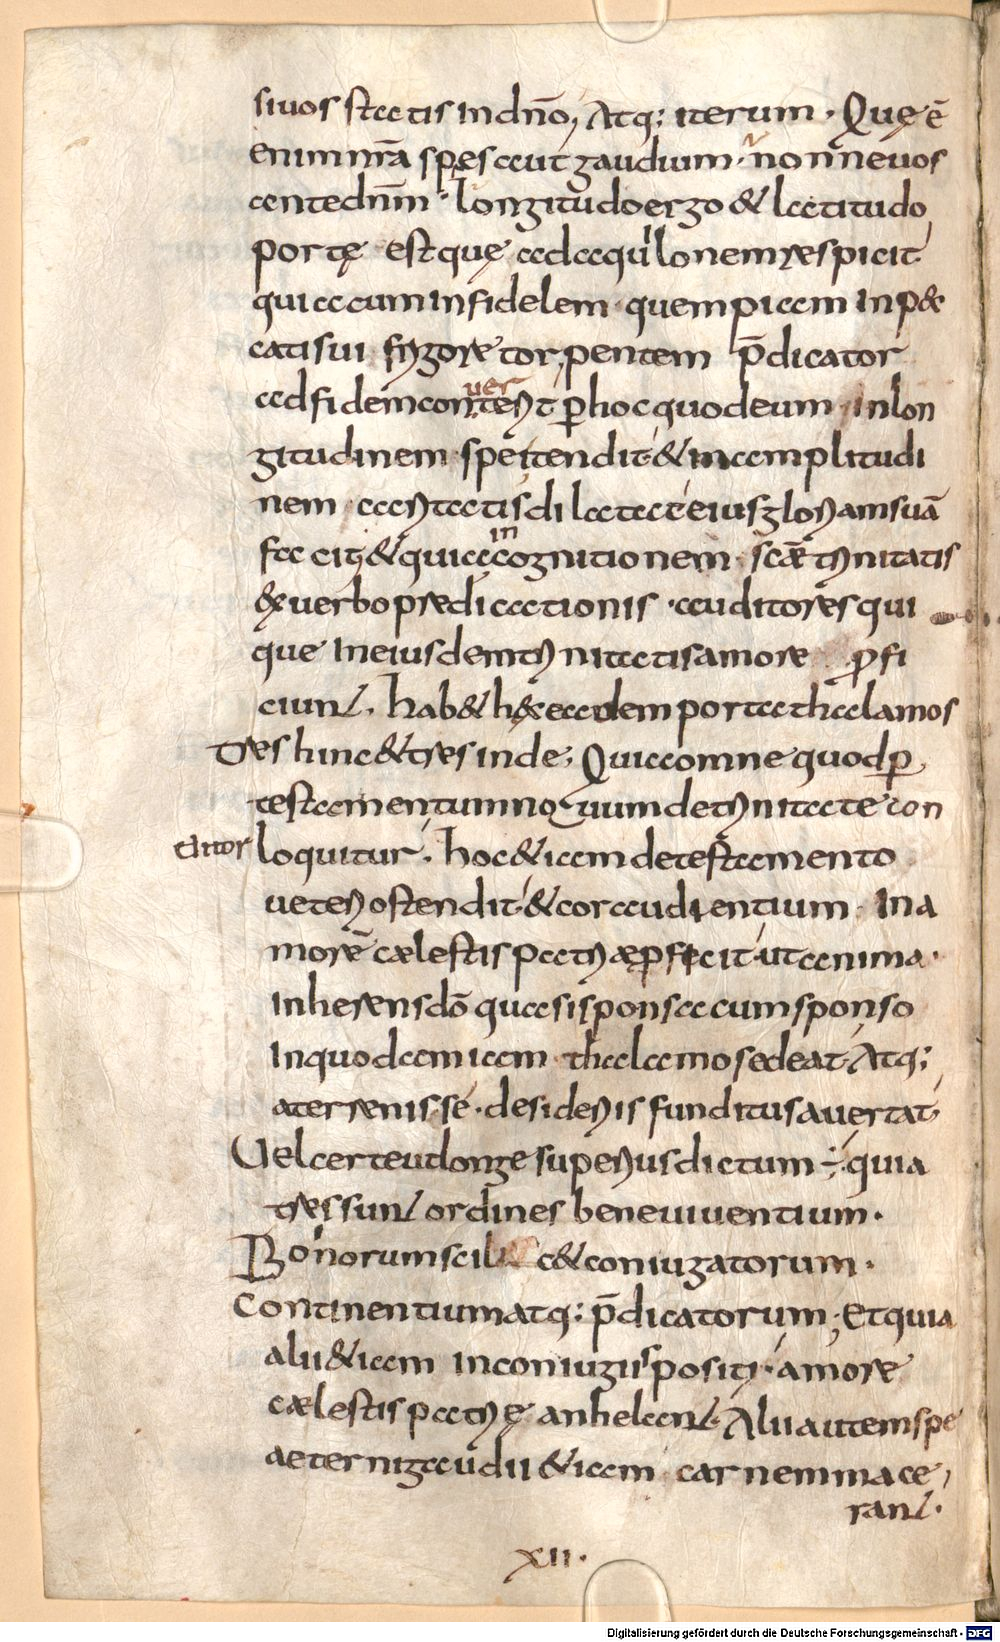 si uos statis in dn̄o, Atq; iterum · Quę ē
enim nr̄a spes aut gaudium · nonne uos
ante dnm̄ · longitudo ergo & latitudo
portę est quę ad aquilonem respicit
quia cum infidelem · quempiam in pec
cati sui frigore torpentem p̄dicator
ad fidem conuerterit p̱ hoc quod eum in lon
gitudinem spei tendit · & in amplitudi
nem caritatis dilatat eius gloriam suā
facit; & quia in cognitionem scāe trinitatis
ex uerbo predicationis · auditores qui
que in eiusdem trinitatis amore profi
ciunt. hab& haec eadem porta thalamos
tres hinc & tres inde, Quia omne quod p̱
testamentum nouum de trinitate con
ditor
loquitur. hoc &iam de testamento
ueteri ostendit · & cor audientium in a
morē caelestis patriae perficit · ut anima ·
inherens dō quasi sponsa cum sponso
in quodam iam thalamo sedeat, Atq;
a terrenis se · desideriis funditus auertat
Vel certe ut longe superius dictum ÷ · quia
tres sunt ordines bene uiuentium ·
Bonorum scil& & coniugatorum ·
Continentium atq; p̄dicatorum · Et quia
alii &iam in coniugiis positi · amore
caelestis patrię anhelant. Alii autem spe
aeterni gaudii &iam carnem mace
rant.
XII ·
Digitalisierung gefördert durch die Deutsche Forschungsgemeinschaft - DFG